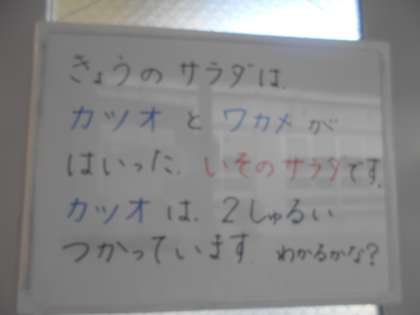 きょうの サラダは、
カツオ と ワカメ が
はいった、いそのサラダです。
カツオ は、2しゅるい
つかっています。 わかるかな?